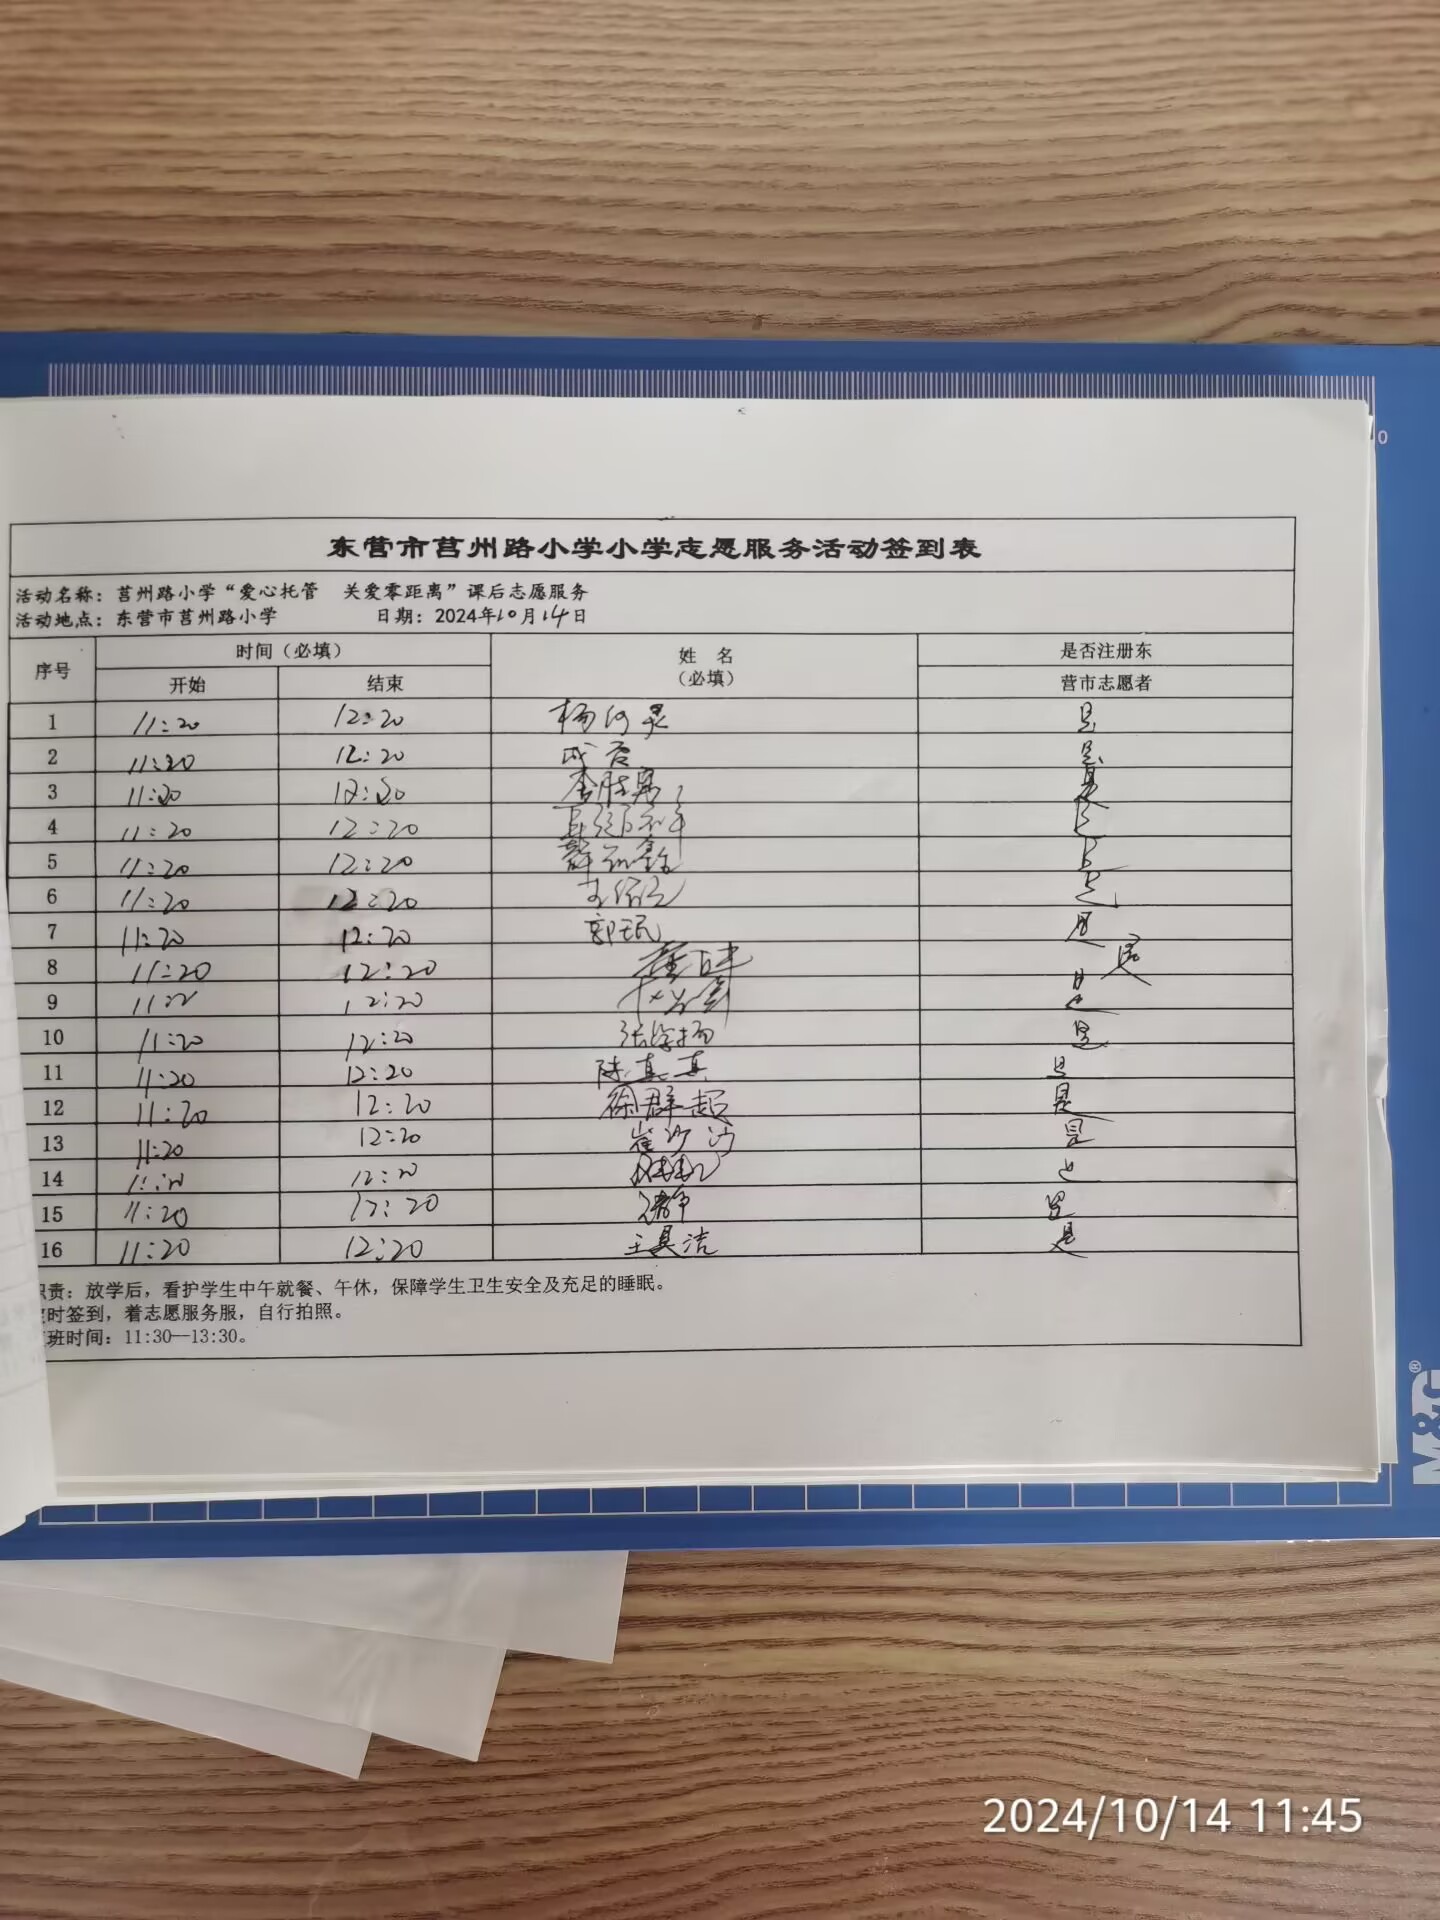 东营市莒州路小学小学志愿服务活动签到表
活动名称：莒州路小学“爱心托管　关爱零距离”课后志愿服务
活动地点：东营市莒州路小学　日期：2024年10月14日
序号 时间（必填） 姓 名（必填） 是否注册东营市志愿者
开始 结束
1 11:20 12:20 杨河灵 是
2 11:20 12:20 是
3 11:20 12:20 李胜男 是
4 11:20 12:20 是
5 11:20 12:20 是
6 11:20 12:20 是
7 11:20 12:20 郭珉 是
8 11:20 12:20 是
9 11:20 12:20 是
10 11:20 12:20 张学扬 是
11 11:20 12:20 陈真真 是
12 11:20 12:20 徐群超 是
13 11:20 12:20 崔沙沙 是
14 11:20 12:20 是
15 11:20 12:20 是
16 11:20 12:20 王具洁 是
责：放学后，看护学生中午就餐、午休，保障学生卫生安全及充足的睡眠。
时签到，着志愿服务服，自行拍照。
班时间：11:30—13:30。
0
M&G®
2024/10/14 11:45